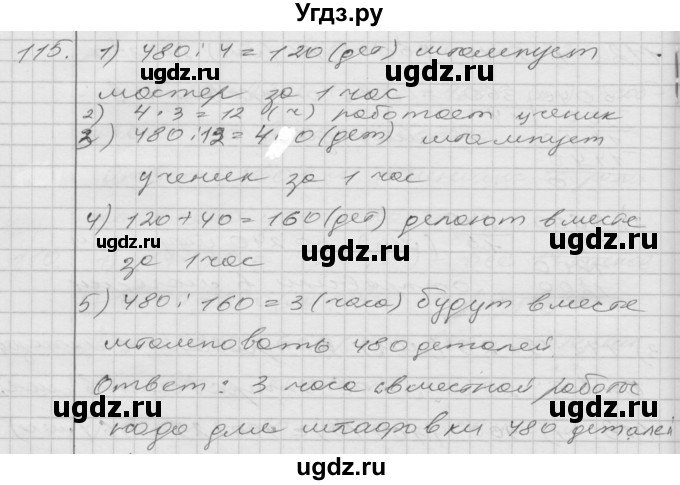 Угдз.ру
115. 1) 480 : 4 = 120 (дет) штампует
мастер за 1 час
2) 4 · 3 = 12 (ч) работает ученик
3) 480 : 12 = 40 (дет) штампует
ученик за 1 час
4) 120 + 40 = 160 (дет) делают вместе
за 1 час
5) 480 : 160 = 3 (часа) будут вместе
штамповать 480 деталей
Ответ: 3 часа свместной работы
надо для штафровки 480 деталей
ugdz.ru ugdz.ru ugdz.ru
ugdz.ru ugdz.ru ugdz.ru
ugdz.ru ugdz.ru ugdz.ru
ugdz.ru ugdz.ru ugdz.ru
ugdz.ru